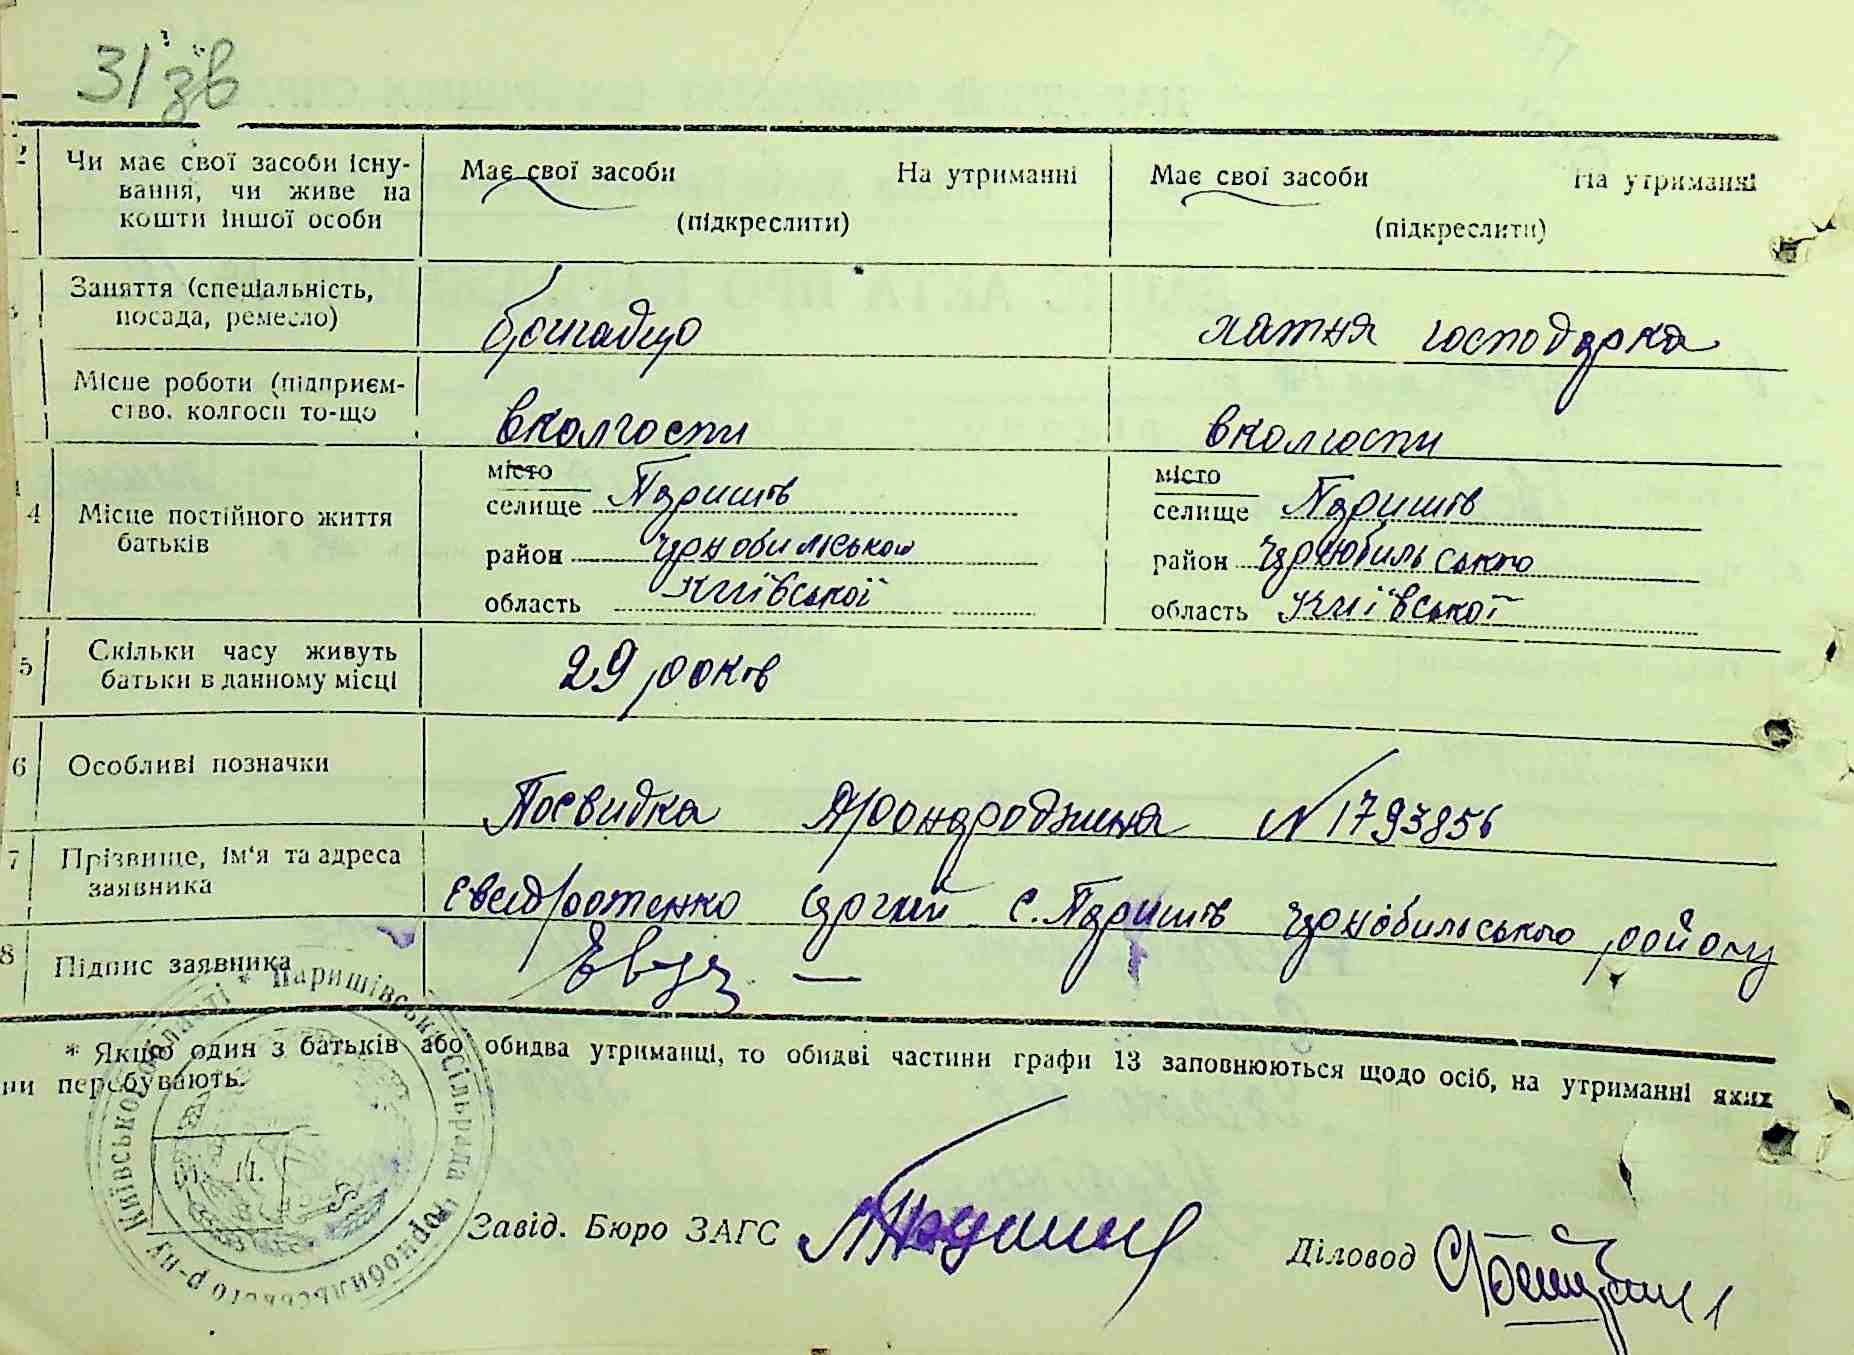 31 зв
2 Чи має свої засоби існу-
вання, чи живе на
кошти іншої особи
Має свої засоби На утриманні
(підкреслити)
Має свої засоби На утриманні
(підкреслити)
Заняття (спеціальність,
посада, ремесло)
бригадир
хатня господарка
Місце роботи (підприєм-
ство, колгосп то-що
вколгоспи
вколгоспи
4 Місце постійного життя
батьків
місто
селище Паришів
район Чорнобильського
область Київської
місто
селище Паришів
район Чорнобильського
область Київської
5 Скільки часу живуть
батьки в данному місці
29 років
6 Особливі позначки
Посвидка N 1793856
7 Прізвище, ім'я та адреса
заявника
Сергий с. Паришів Чорнобильського району
8 Підпис заявника
* Якщо один з батьків або обидва утриманці, то обидві частини графи 13 заповнюються щодо осіб, на утриманні яких
ни перебувають.
* Паришівська сільрада Чорнобильського р-ну Київської області
М. П.
Завід. Бюро ЗАГС
Діловод